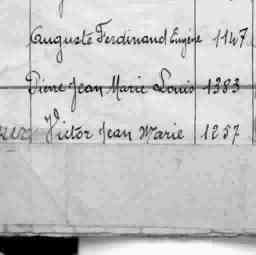 Auguste Ferdinand Eugène 1147
Pierre Jean Marie Louis 1383
Victor Jean Marie 1257